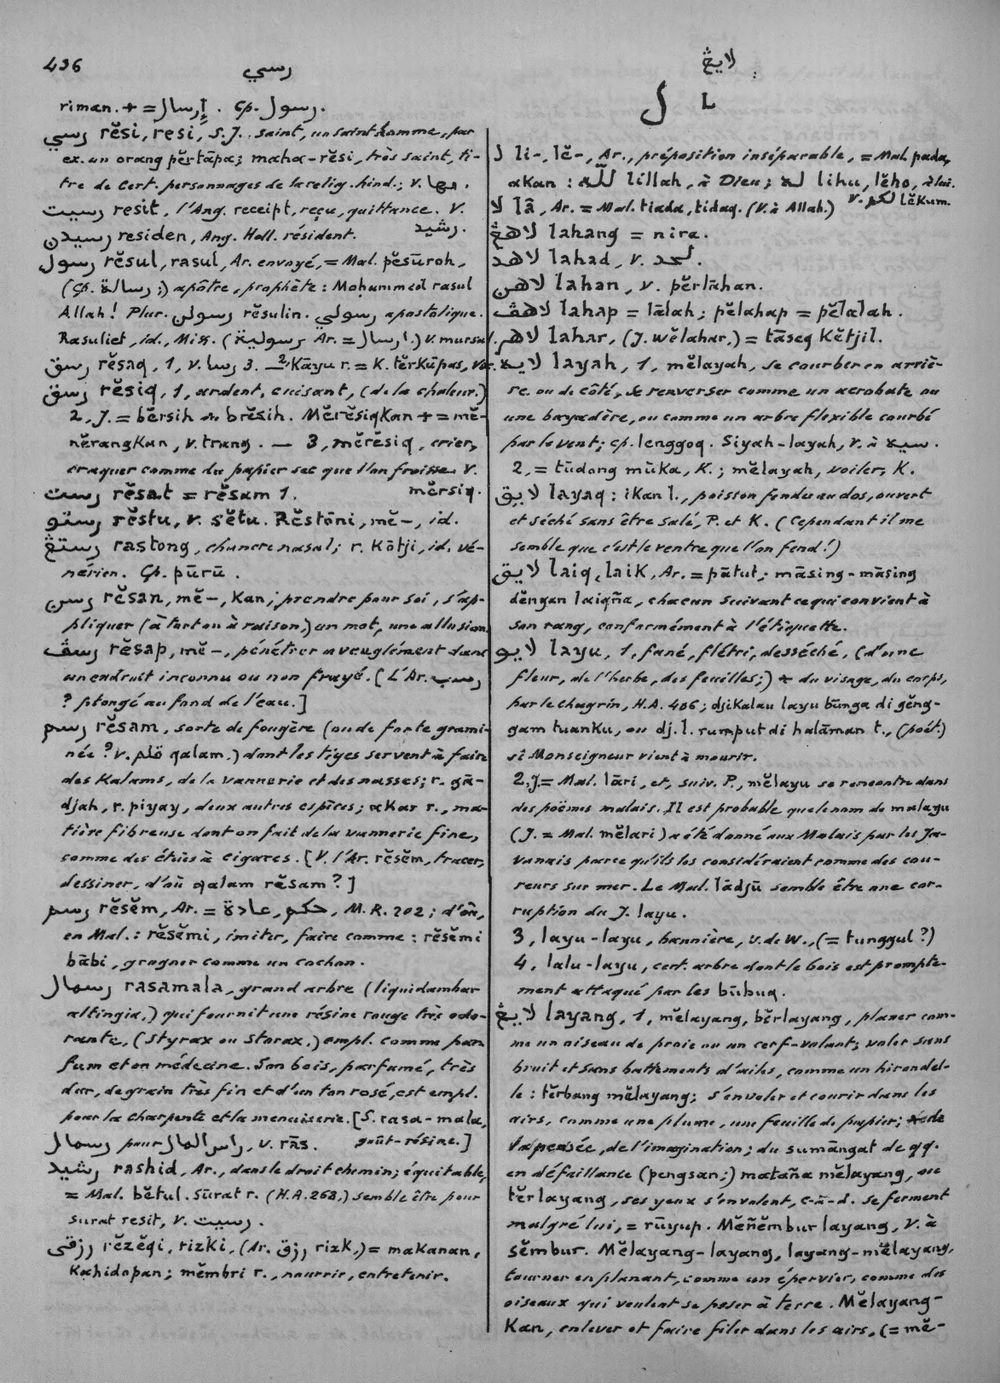 436
رسي
riman. + = إرسال. Cp. رسول.
رسي rĕsi, resi, S. J. saint, un saint homme, par
ex. un orang pĕrtāpa; maha-rĕsi, très saint, ti-
tre de cert. personnages de la relig. hind.; v. مها.
رسيت resit, l'Ang. receipt, reçu, quittance. V.
رشيد.
رسيدن residen, Ang. Holl. résident.
رسول rĕsul, rasul, Ar. envoyé, = Mal. pĕsūroh,
(Cp. رسالة;) apôtre, prophète: Moḥammed rasul
Allah! Plur. رسولن rĕsulin. رسولي apostolique.
Rasuliet, id., Miss. (رسولية Ar. = ارسال.) v. mursal.
رسق rĕsaq, 1, v. رسا 3. — 2 Kāyu r. = K. tĕrkūpas, Var.
رسق rĕsiq, 1, ardent, cuisant, (de la chaleur.)
2, J. = bĕrsih ou brĕsih. Mĕrĕsiqkan + = mĕ-
nĕrangkan, v. trang. — 3, mĕrĕsiq, crier,
craquer comme du papier sec que l'on froisse. V.
mĕrsiq.
رست rĕsat = rĕsam 1.
رستو rĕstu, v. sĕtu. Rĕstōni, mĕ-, id.
رستڠ rastong, chancre nasal; r. Kōtji, id. vé-
nérien. Cp. pūrū.
رسن rĕsan, mĕ-, kan, prendre pour soi, s'ap-
pliquer (à tort ou à raison,) un mot, une allusion.
رسڤ rĕsap, mĕ-, pénétrer aveuglément dans
un endroit inconnu ou non frayé. [L'Ar. رسب
? plongé au fond de l'eau.]
رسم rĕsam, sorte de fougère (ou de forte grami-
née? v. قلم qalam.) dont les tiges servent à faire
des Kalams, de la vannerie et des nasses; r. gā-
djah, r. piyay, deux autres espèces; akar r., ma-
tière fibreuse dont on fait de la vannerie fine,
comme des étuis à cigares. [V. l'Ar. rĕsĕm, tracer,
dessiner, d'où qalam rĕsam?]
رسم rĕsĕm, Ar. = حكم, عادة, M. R. 202; d'où,
en Mal.: rĕsĕmi, imiter, faire comme: rĕsĕmi
bābi, grogner comme un cochon.
رسمال rasamala, grand arbre (liquidambar
altingia,) qui fournit une résine rouge très odo-
rante, (styrax ou storax,) empl. comme par
fum et en médecine. Son bois, parfumé, très
dur, de grain très fin et d'un ton rosé, est empl.
pour la charpente et la menuiserie. [S. rasa-mala,
goût-résine.]
رسمال pour راس المال, v. rās.
رشيد rashid, Ar., dans le droit chemin; équitable,
= Mal. bĕtul. Sūrat r. (H.A. 268,) semble être pour
surat resit, v. رسيت.
رزقي rĕzĕqi, rizki, (Ar. رزق rizk,) = makanan,
kahidopan; mĕmbri r., nourrir, entretenir.
لايڠ
ل L
ل li-, lĕ-, Ar., préposition inséparable, = Mal. pada,
akan: لله lillah, à Dieu; له lihu, lĕho, à lui.
V. لكم lĕkum.
لا lā, Ar. = Mal. tiada, tidaq. (V. à Allah.)
لاهڠ lahang = nira.
لاهد lahad, v. لحد.
لاهن lahan, v. pĕrlāhan.
لاهڤ lahap = lālah; pĕlahap = pĕlalah.
لاهر lahar, (J. wĕlahar,) = tāseq Kĕtjil.
لايه layah, 1, mĕlayah, se courber en arriè-
re. ou de côté, se renverser comme un acrobate ou
une bayadère, ou comme un arbre flexible courbé
par le vent; cp. lenggoq. Siyah-layah, v. à سيه.
2, = tūdong mūka, K.; mĕlayah, voiler, K.
لايق layaq: ikan l., poisson fendu au dos, ouvert
et séché sans être salé, P. et K. (Cependant il me
semble que c'est le ventre que l'on fend!)
لايق laiq, laik, Ar. = pātut; māsing-māsing
dĕngan laiqña, chacun suivant ce qui convient à
son rang, conformément à l'étiquette.
لايو layu, 1, fané, flétri, desséché, (d'une
fleur, de l'herbe, des feuilles;) * du visage, du corps,
par le chagrin, H.A. 406; djikalau layu būnga di gĕng-
gam tuanku, ou dj. l. rumput di halāman t., (poét.)
si Monseigneur vient à mourir.
2, J. = Mal. lāri, et, suiv. P., mĕlayu se rencontre dans
des poëmes malais. Il est probable que le nom de malayu
(J. = Mal. mĕlari) a été donné aux Malais par les Ja-
vanais parce qu'ils les considéraient comme des cou-
reurs sur mer. Le Mal. lādjū semble être une cor-
ruption du J. layu.
3, layu-layu, bannière, v. de W., (= tunggul?)
4, lalu-layu, cert. arbre dont le bois est prompte-
ment attaqué par les būbuq.
لايڠ layang, 1, mĕlayang, bĕrlayang, planer com-
me un oiseau de proie ou un cerf-volant; voler sans
bruit et sans battements d'ailes, comme un hirondel-
le: tĕrbang mĕlayang; s'envoler et courir dans les
airs, comme une plume, une feuille de papier; * de
la pensée, de l'imagination; du sumāngat de qq.
en défaillance (pengsan;) mataña mĕlayang, ou
tĕrlayang, ses yeux s'envolent, c-à-d. se ferment
malgré lui, = rūyup. Mĕñĕmbur layang, v. à
sĕmbur. Mĕlayang-layang, layang-mĕlayang,
tourner en planant, comme un épervier, comme des
oiseaux qui veulent se poser à terre. Mĕlayang-
Kan, enlever et faire filer dans les airs, (= mĕ-